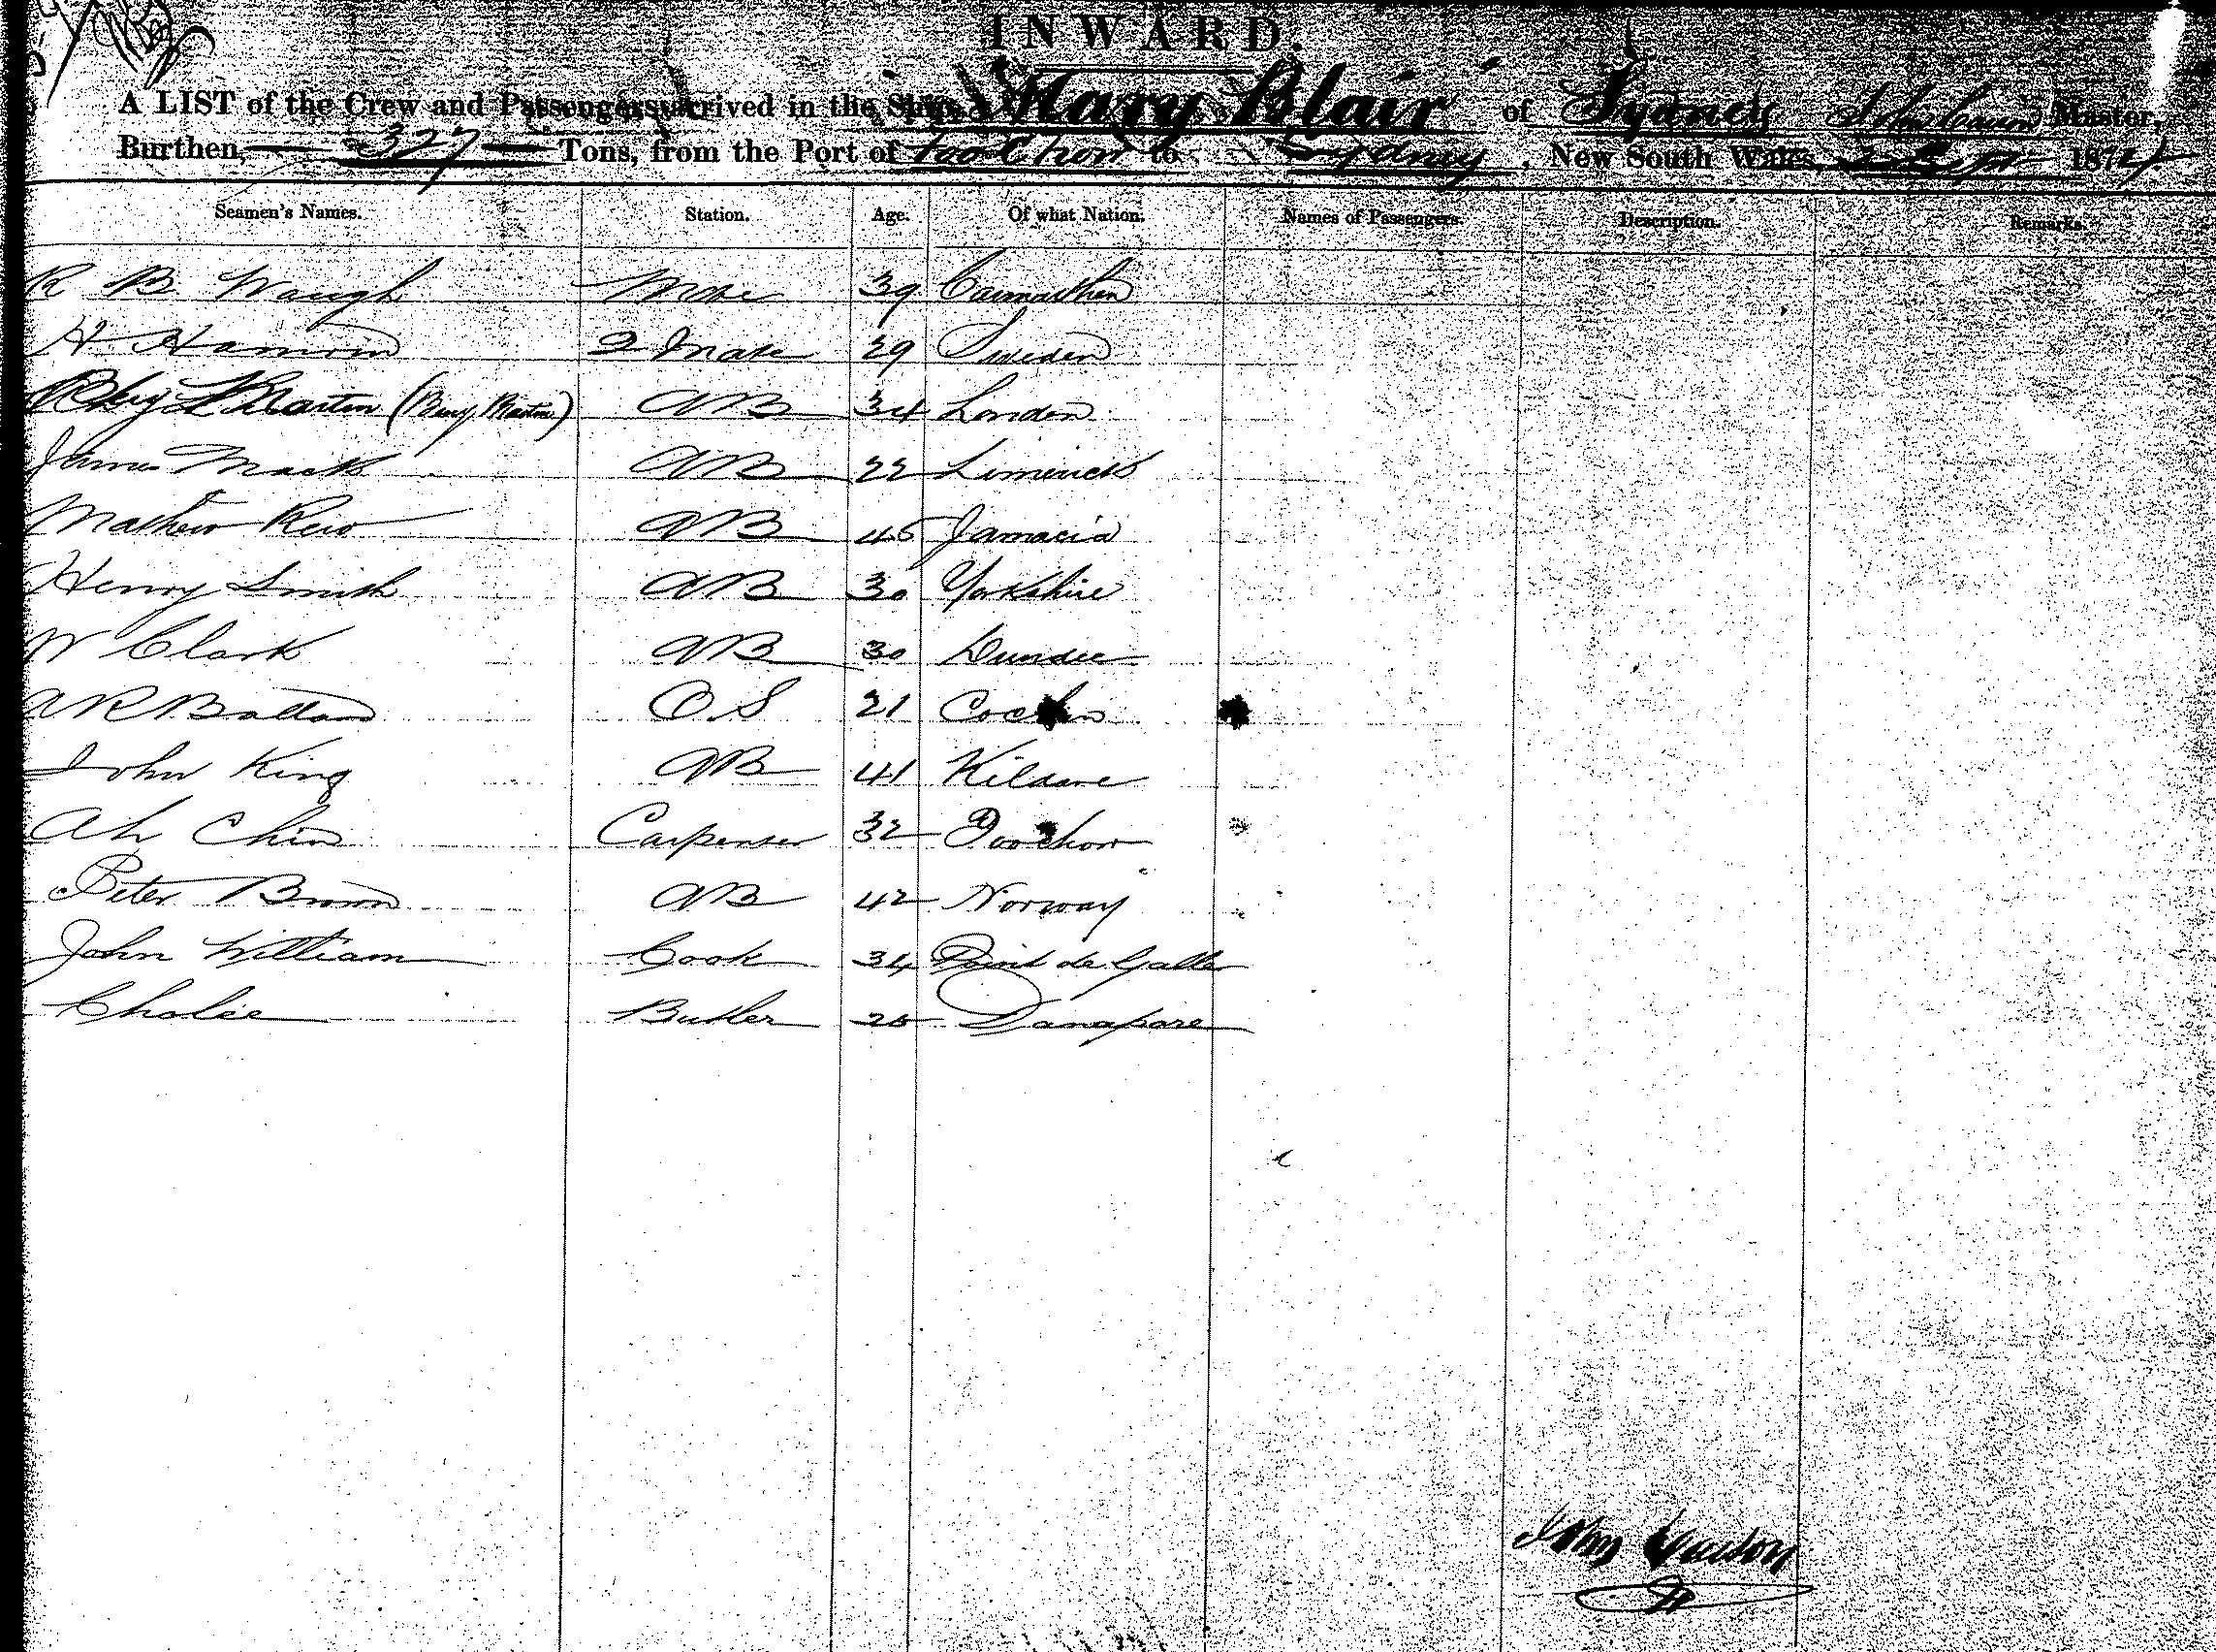 INWARD.
A LIST of the Crew and Passengers arrived in the Ship Mary Blair of Sydney John Master,
Burthen, 327 Tons, from the Port of Foo Chow to Sydney, New South Wales, 1874
Seamen's Names. Station. Age. Of what Nation. Names of Passengers. Description. Remarks.
R B. Waugh Mate 39 Carmarthen
H Hamrin 2 Mate 29 Sweden
Martin (Benj Martin) AB 34 London
James Mack AB 22 Limerick
Mathew Rew AB 45 Jamacia
Henry Smith AB 30 Yorkshire
W Clark AB 30 Dundee
A R Ballard O.S 21 Cochin
John King AB 41 Kildare
Ah Chin Carpenter 32 Foochow
Peter Brown AB 42 Norway
John William Cook 34 Point de Galle
Cholee Butler 25 Danapore
John